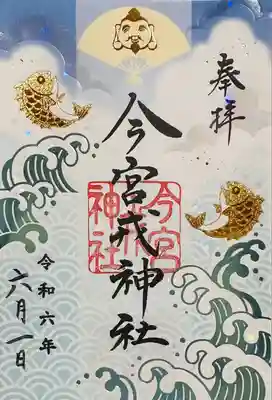 奉拝
今宮戎神社
今宮
戎
神社
令和六年
六月一日